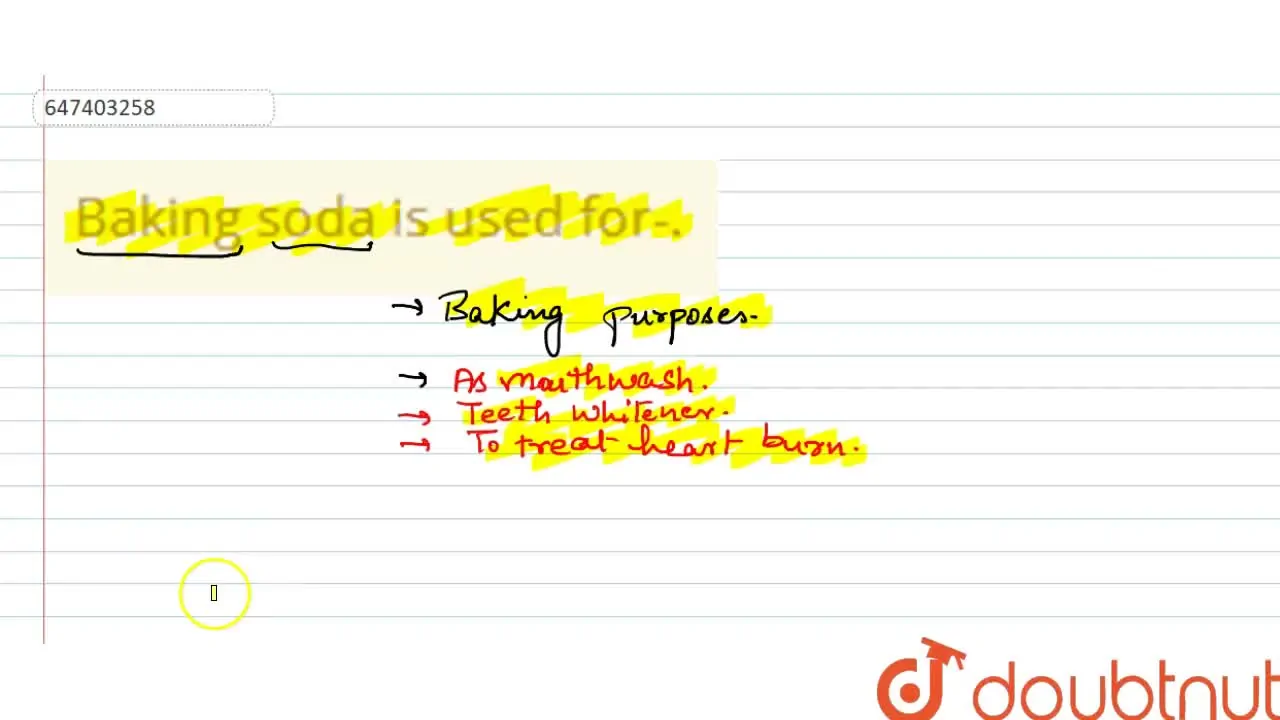 647403258
Baking soda is used for-.
→ Baking purposes.
→ As mouthwash.
→ Teeth whitener.
→ To treat heart burn.
doubtnut